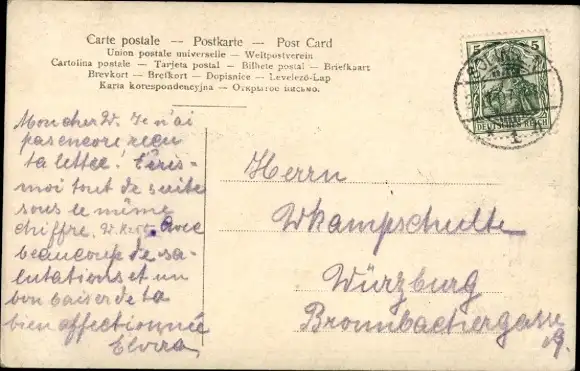 Carte postale — Postkarte — Post Card
Union postale universelle — Weltpostverein
Cartolina postale — Tarjeta postal — Bilhete postal — Briefkaart
Brevkort — Brefkort — Dopisnice — Levelező-Lap
Karta korespondencyjna — Открытое письмо.
5 5
DEUTSCHES REICH
1
Mon cher W. Je n'ai
pas encore reçu
ta lettre! Écris-
moi tout de suite
sous le même
chiffre. Avec
beaucoup de sa-
lutations et un
bon baiser de ta
bien affectionnée
Elvira
Herrn
W. Kampschulte
Würzburg
Bronnbachergasse